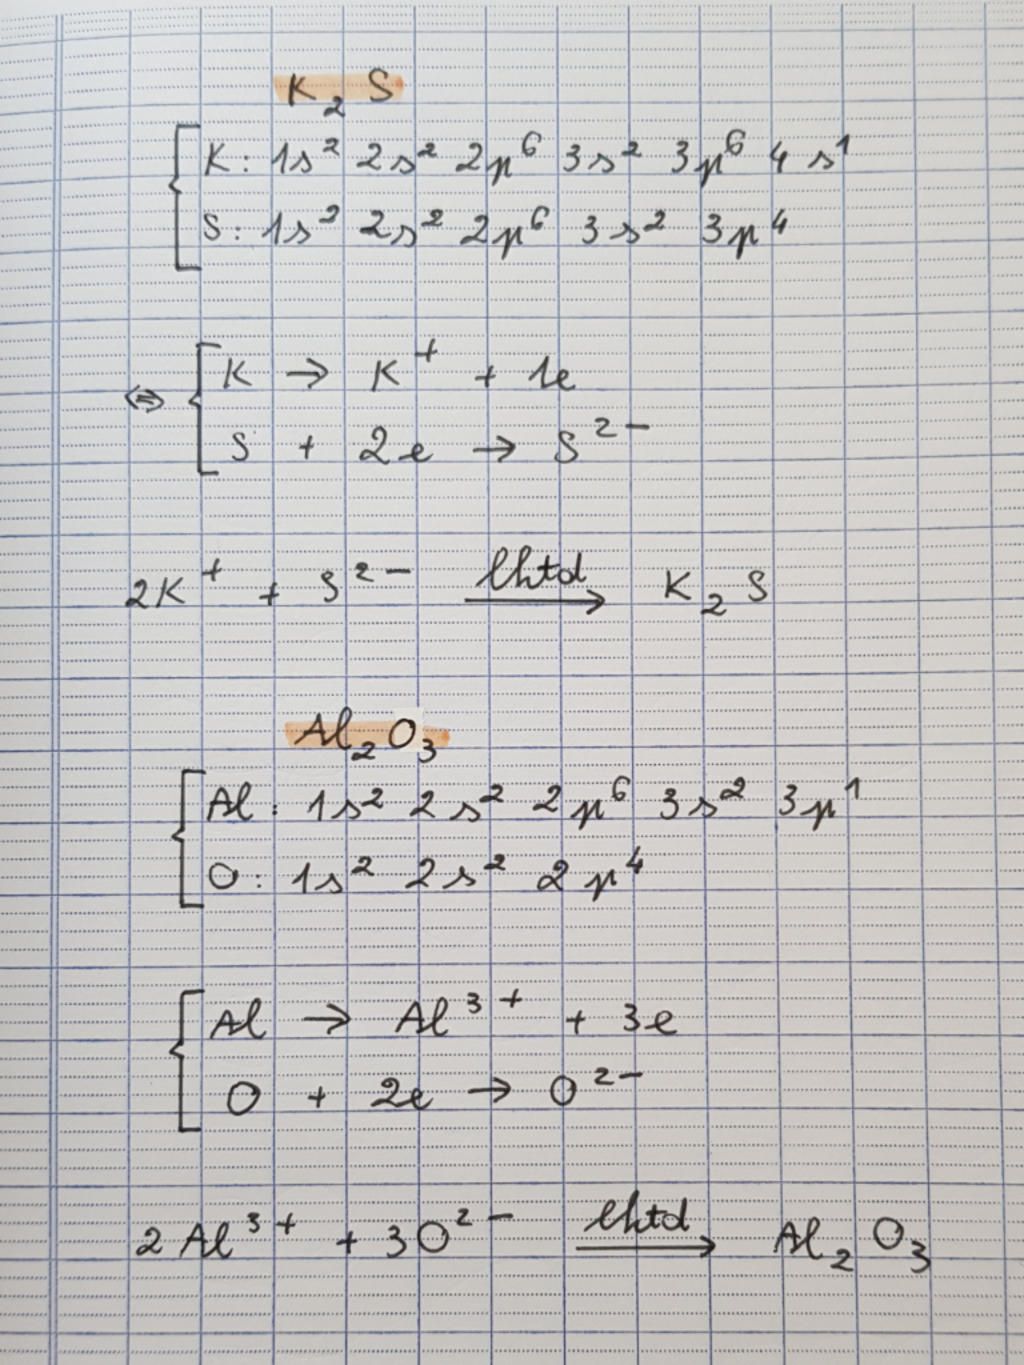 K₂S
K: 1s² 2s² 2p⁶ 3s² 3p⁶ 4s¹
S: 1s² 2s² 2p⁶ 3s² 3p⁴
⇔ K → K⁺ + 1e
S + 2e → S²⁻
2K⁺ + S²⁻ lhtd → K₂S
Al₂O₃
Al: 1s² 2s² 2p⁶ 3s² 3p¹
O: 1s² 2s² 2p⁴
Al → Al³⁺ + 3e
O + 2e → O²⁻
2Al³⁺ + 3O²⁻ lhtd → Al₂O₃